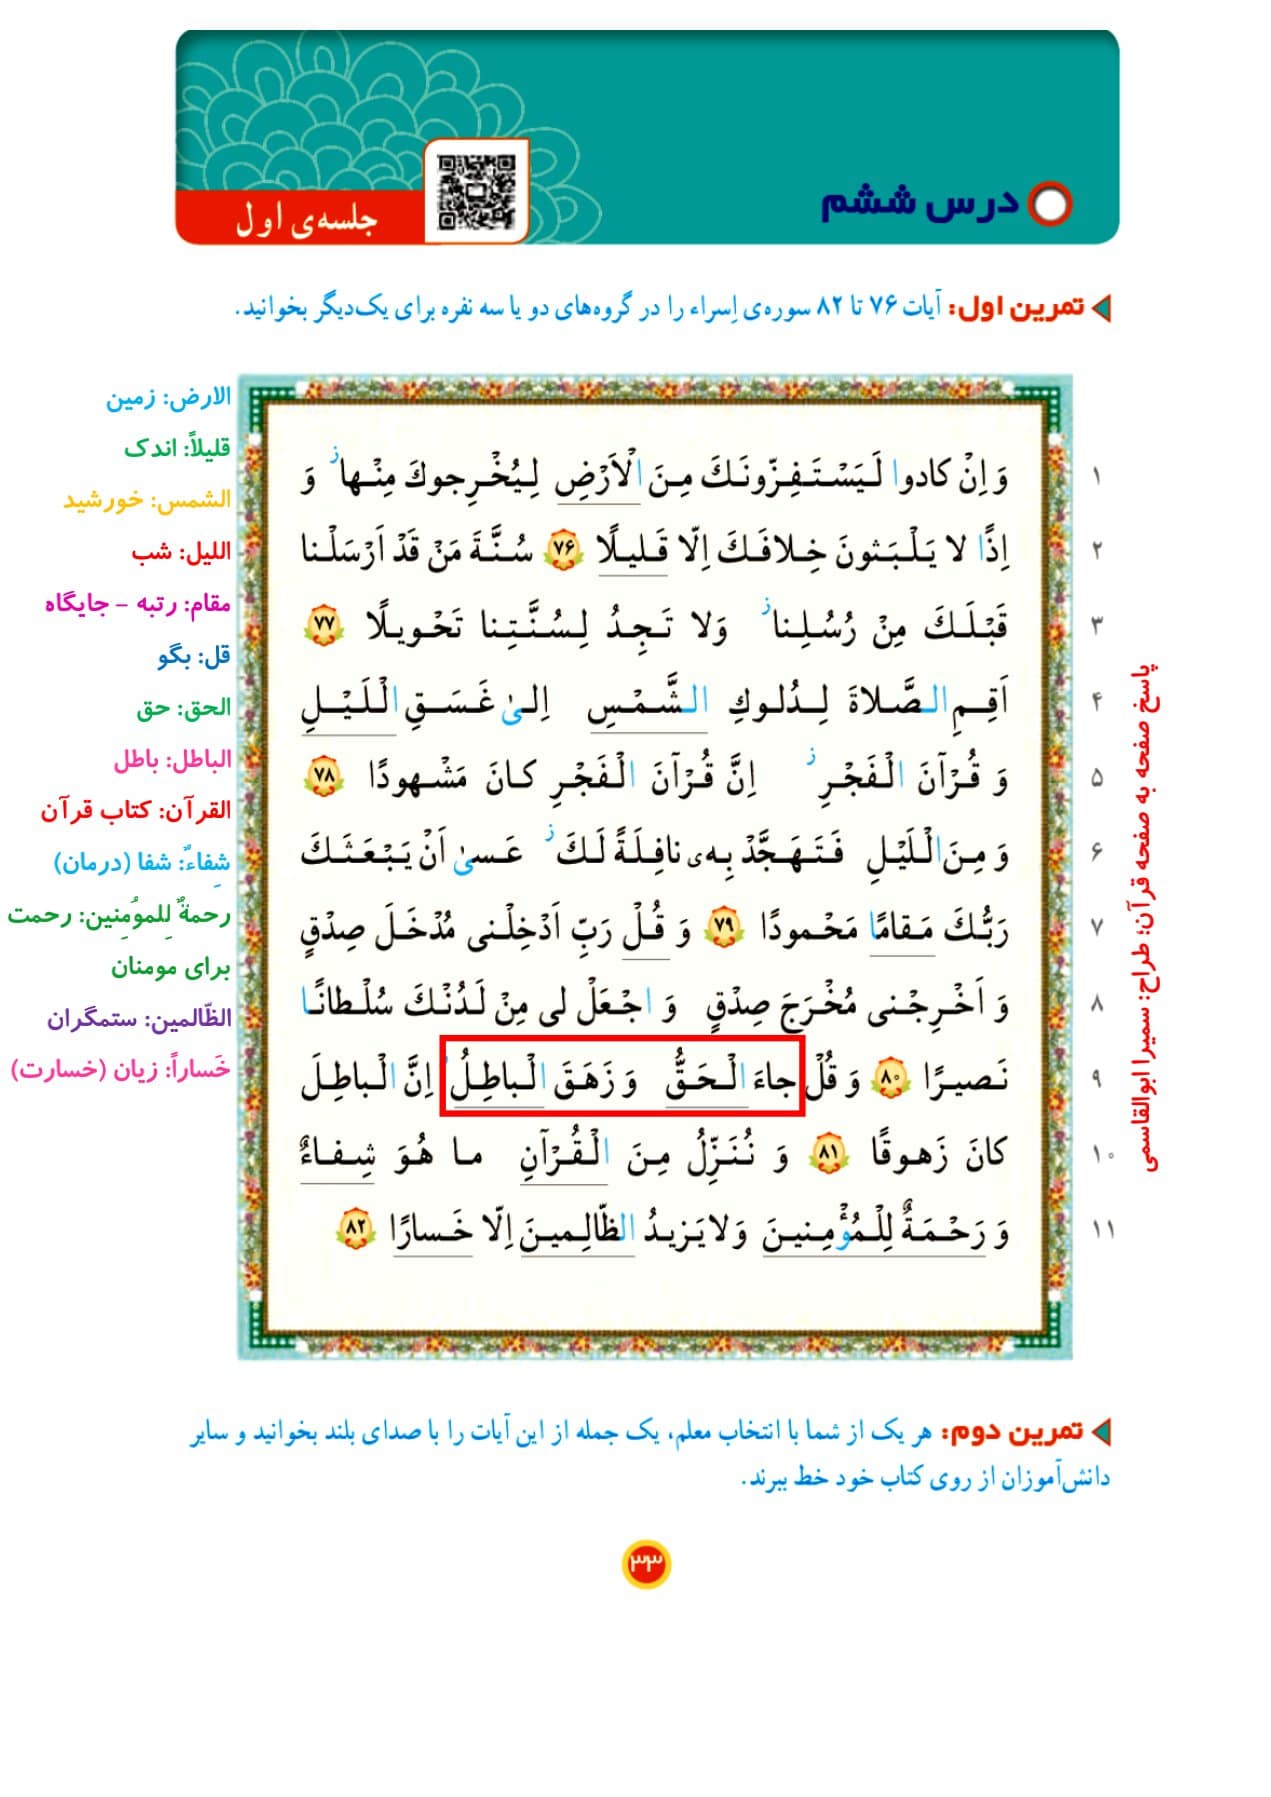 درس ششم
جلسه‌ی اول
تمرین اول: آیات ۷۶ تا ۸۲ سوره‌ی اِسراء را در گروه‌های دو یا سه نفره برای یک‌دیگر بخوانید.
۱ وَ اِنْ کادوا لَیَسْتَفِزّونَکَ مِنَ الْاَرْضِ لِیُخْرِجوکَ مِنْها ز وَ
۲ اِذًا لا یَلْبَثونَ خِلافَکَ اِلّا قَلیلًا ۷۶ سُنَّةَ مَنْ قَدْ اَرْسَلْنا
۳ قَبْلَکَ مِنْ رُسُلِنا ز وَلا تَجِدُ لِسُنَّتِنا تَحْویلًا ۷۷
۴ اَقِمِ الصَّلاةَ لِدُلوکِ الشَّمْسِ اِلیٰ غَسَقِ الْلَیْلِ
۵ وَ قُرْآنَ الْفَجْرِ ز اِنَّ قُرْآنَ الْفَجْرِ کانَ مَشْهودًا ۷۸
۶ وَ مِنَ الْلَیْلِ فَتَهَجَّدْ بِه‌ی نافِلَةً لَکَ ز عَسیٰ اَنْ یَبْعَثَکَ
۷ رَبُّکَ مَقامًا مَحْمودًا ۷۹ وَ قُلْ رَبِّ اَدْخِلْنی مُدْخَلَ صِدْقٍ
۸ وَ اَخْرِجْنی مُخْرَجَ صِدْقٍ وَ اجْعَلْ لی مِنْ لَدُنْکَ سُلْطانًا
۹ نَصیرًا ۸۰ وَ قُلْ جاءَ الْحَقُّ وَ زَهَقَ الْباطِلُ اِنَّ الْباطِلَ
۱۰ کانَ زَهوقًا ۸۱ وَ نُنَزِّلُ مِنَ الْقُرْآنِ ما هُوَ شِفاءٌ
۱۱ وَ رَحْمَةٌ لِلْمُؤْمِنینَ وَلا یَزیدُ الظّالِمینَ اِلّا خَسارًا ۸۲
الارض: زمین
قلیلاً: اندک
الشمس: خورشید
اللیل: شب
مقام: رتبه - جایگاه
قل: بگو
الحق: حق
الباطل: باطل
القرآن: کتاب قرآن
شِفاءٌ: شفا (درمان)
رحمةٌ لِلموُمِنین: رحمت
برای مومنان
الظّالمین: ستمگران
خَساراً: زیان (خسارت)
پاسخ صفحه به صفحه قرآن؛ طراح: سمیرا ابوالقاسمی
تمرین دوم: هر یک از شما با انتخاب معلم، یک جمله از این آیات را با صدای بلند بخوانید و سایر
دانش‌آموزان از روی کتاب خود خط ببرند.
۳۳